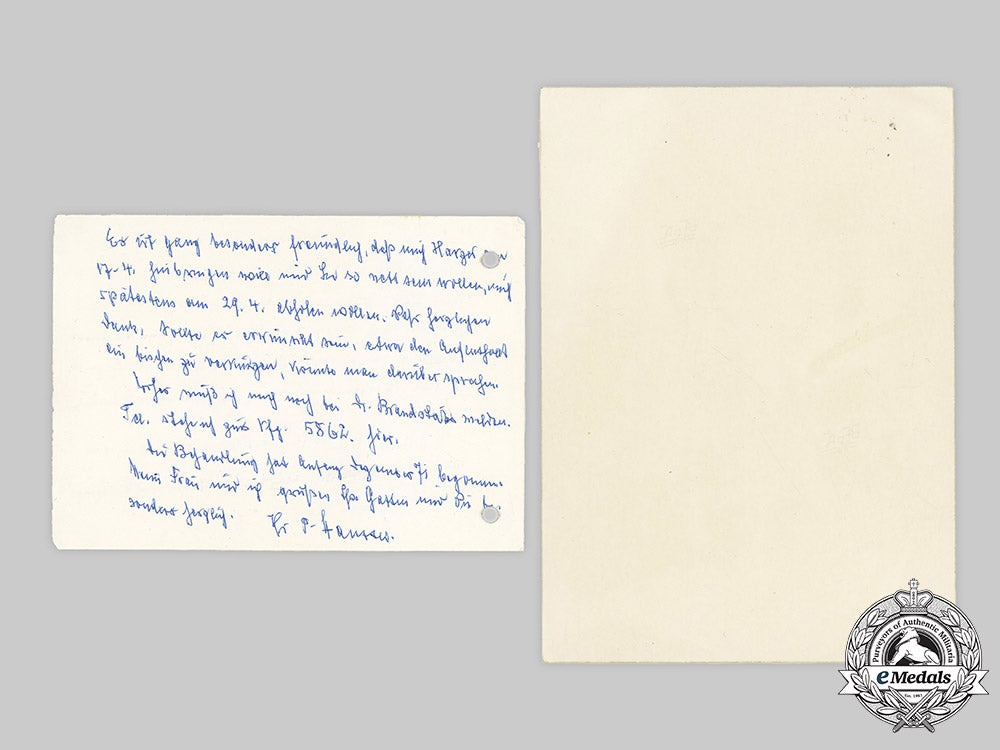 Es ist ganz besonders freundlich, daß mich Harzer
17.4. hinbringen will und Sie so nett sein wollen, mich
spätestens am 29.4. abholen wollen. Sehr herzlichen
Dank, sollte es erwünscht sein, etwa den Aufenthalt
ein bischen zu verkürzen, könnte man darüber sprechen.
muß ich mich noch bei Dr. melden.
Tel. stehe ich zur Vfg. 5862. hier.
Die Behandlung hat Anfang Dezember 71 begonnen.
Meine Frau und ich grüßen Ihren Gatten und Sie be-
sonders herzlich. Ihr
Purveyors of Authentic Militaria
eMedals